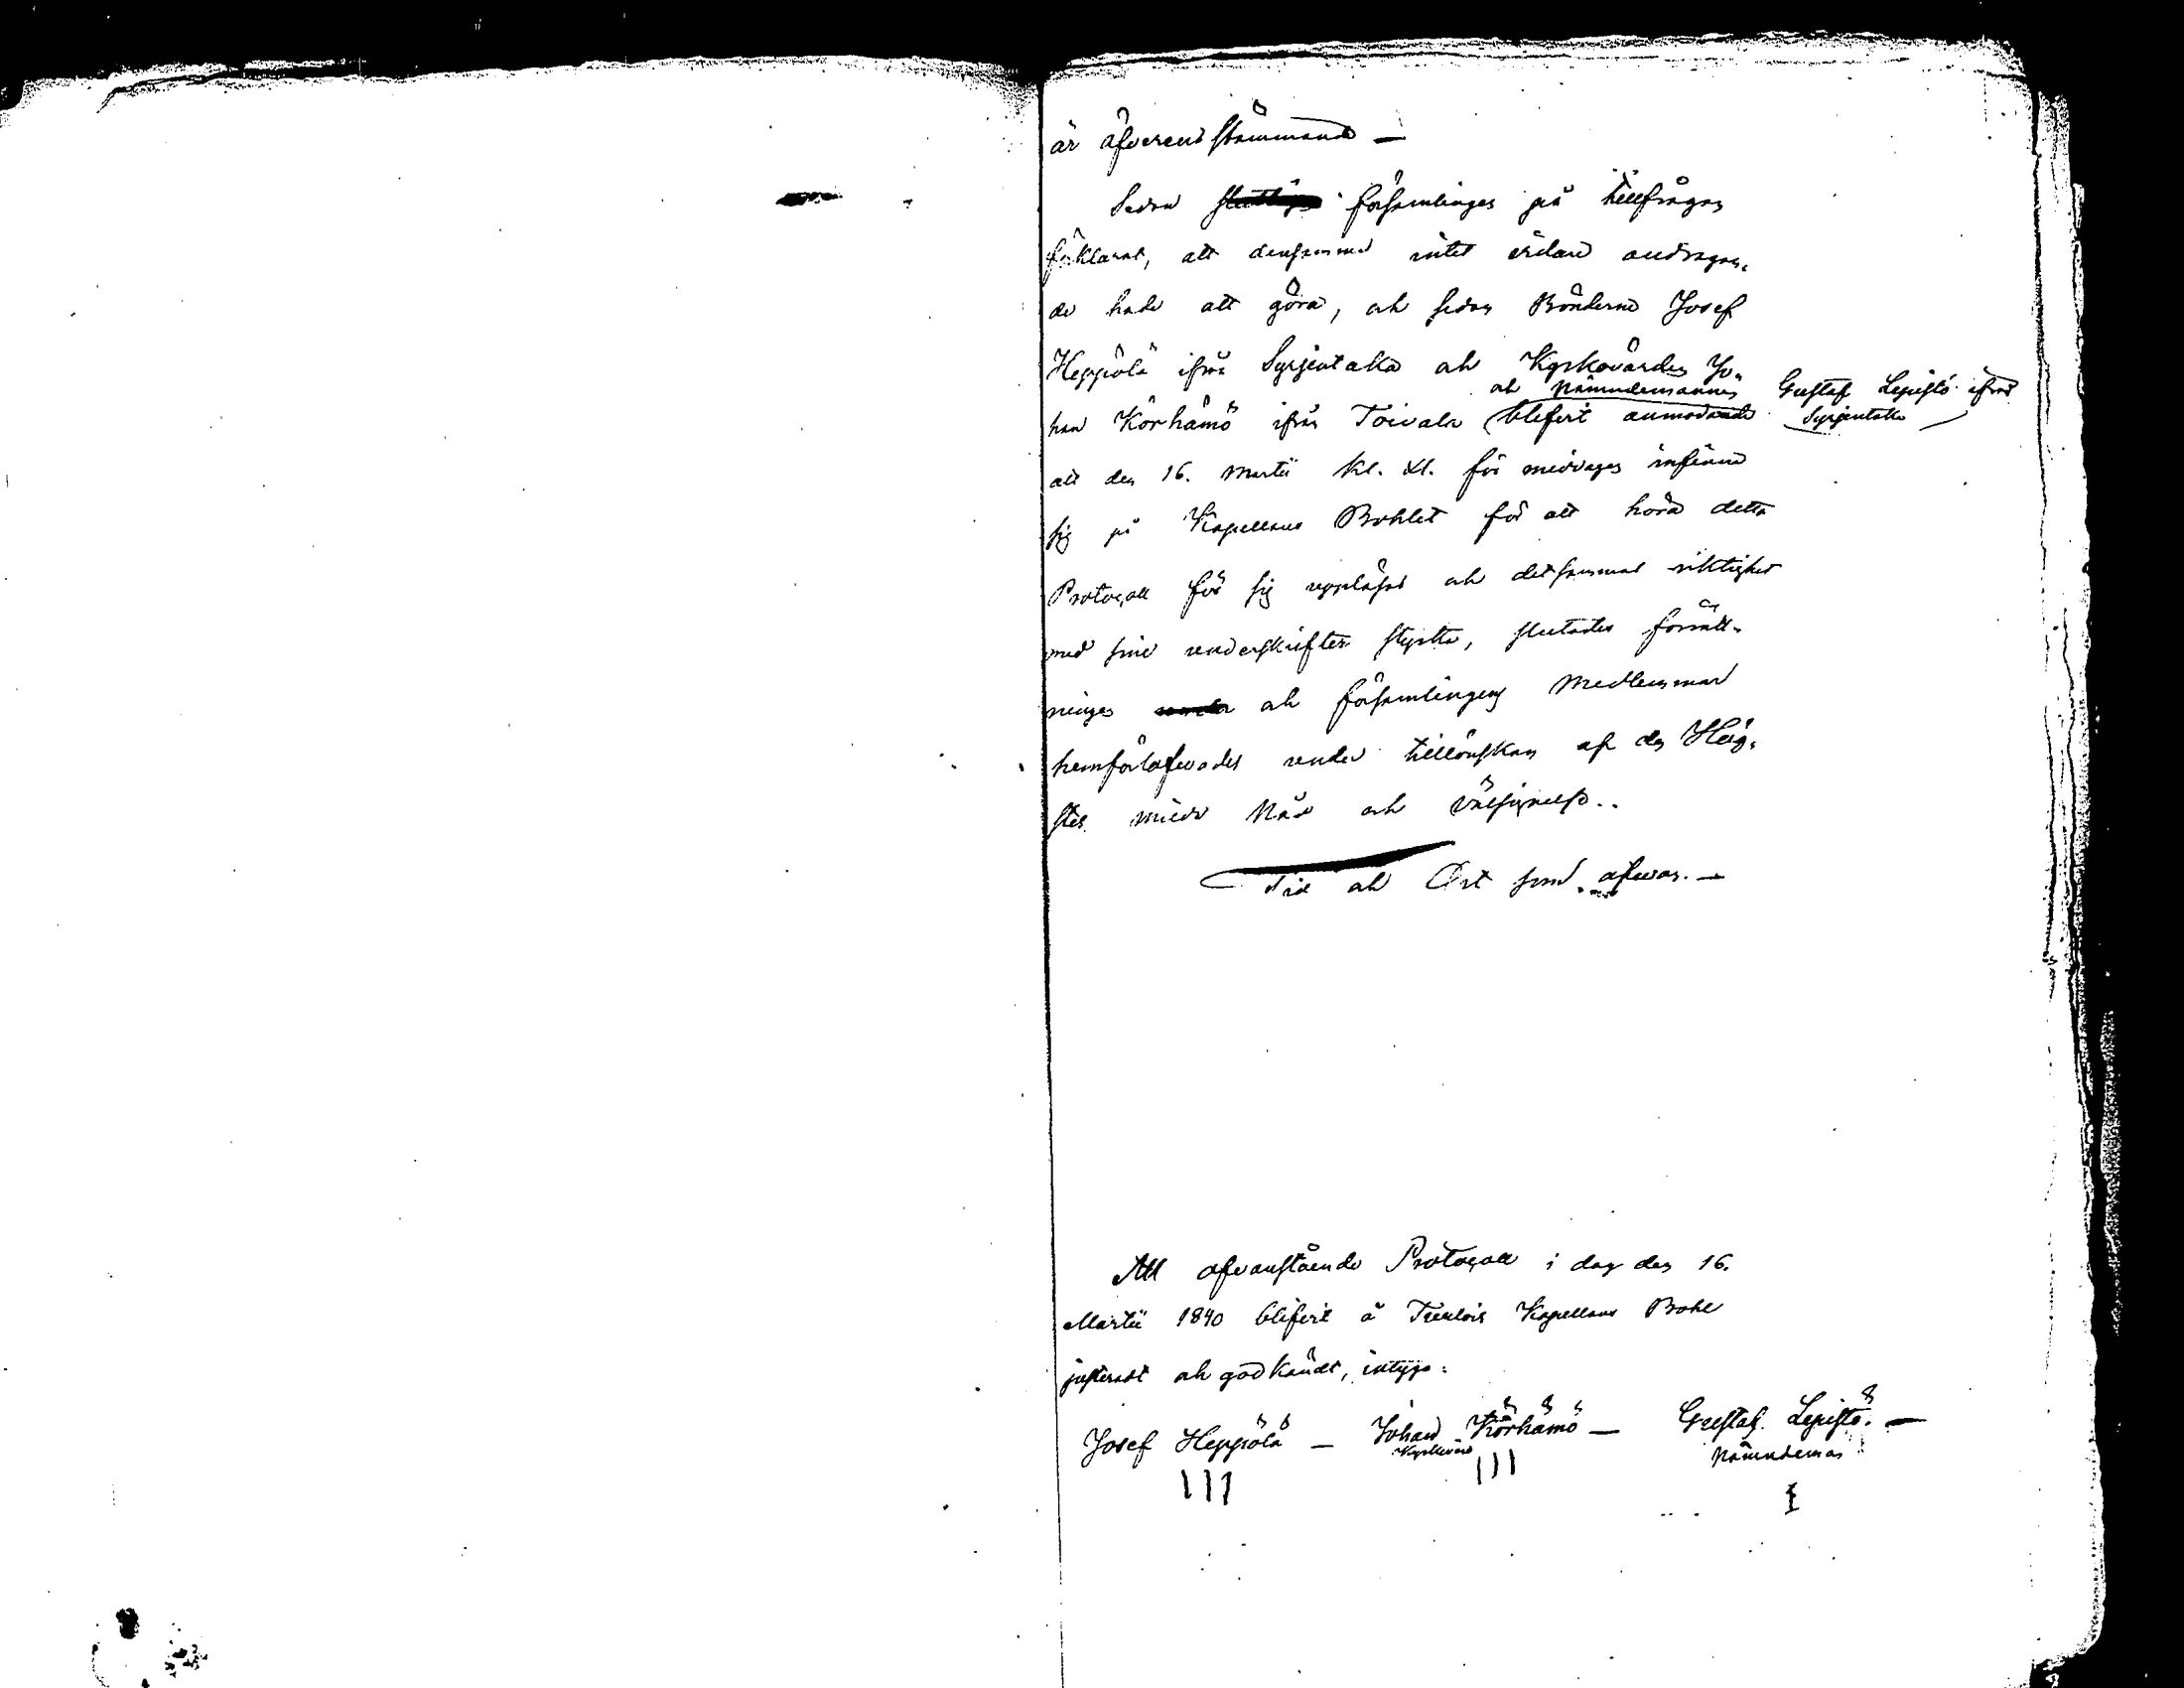 är öfverensstämmande —
Sedan församlingen på tillfrågan
förklarat, att densamma intet vidare andragan-
de hade att göra, och sedan Bönderne Josef
Heppölä ifrån Syrjentaka och Kyrkovärden Jo-
och Nämndemannen Gustaf Lepistö ifrån
han Körhämö ifrån Toivala blifvit anmodande Syrjentaka
att den 16. Martii Kl. XI. för middagen infinna
sig på Kapellans Bohlet för att höra detta
Protocoll för sig uppläsas och detsammas riktighet
med sine underskrifter styrka, slutades förrätt-
ningen och församlingens Medlemmar
hemförlofvades under tillönskan af den Hög-
stes milda Nåd och Välsignelse..
Tid och Ort som ofvan. —
Att ofvanstående Protocoll i dag den 16.
Martii 1840 blifvit å Teulois Kapellans Bohl
justeradt och godkändt, intyga:
Josef Heppölä — Johan Körhämö — Gustaf Lepistö. —
Kyrkovärd Nämndeman